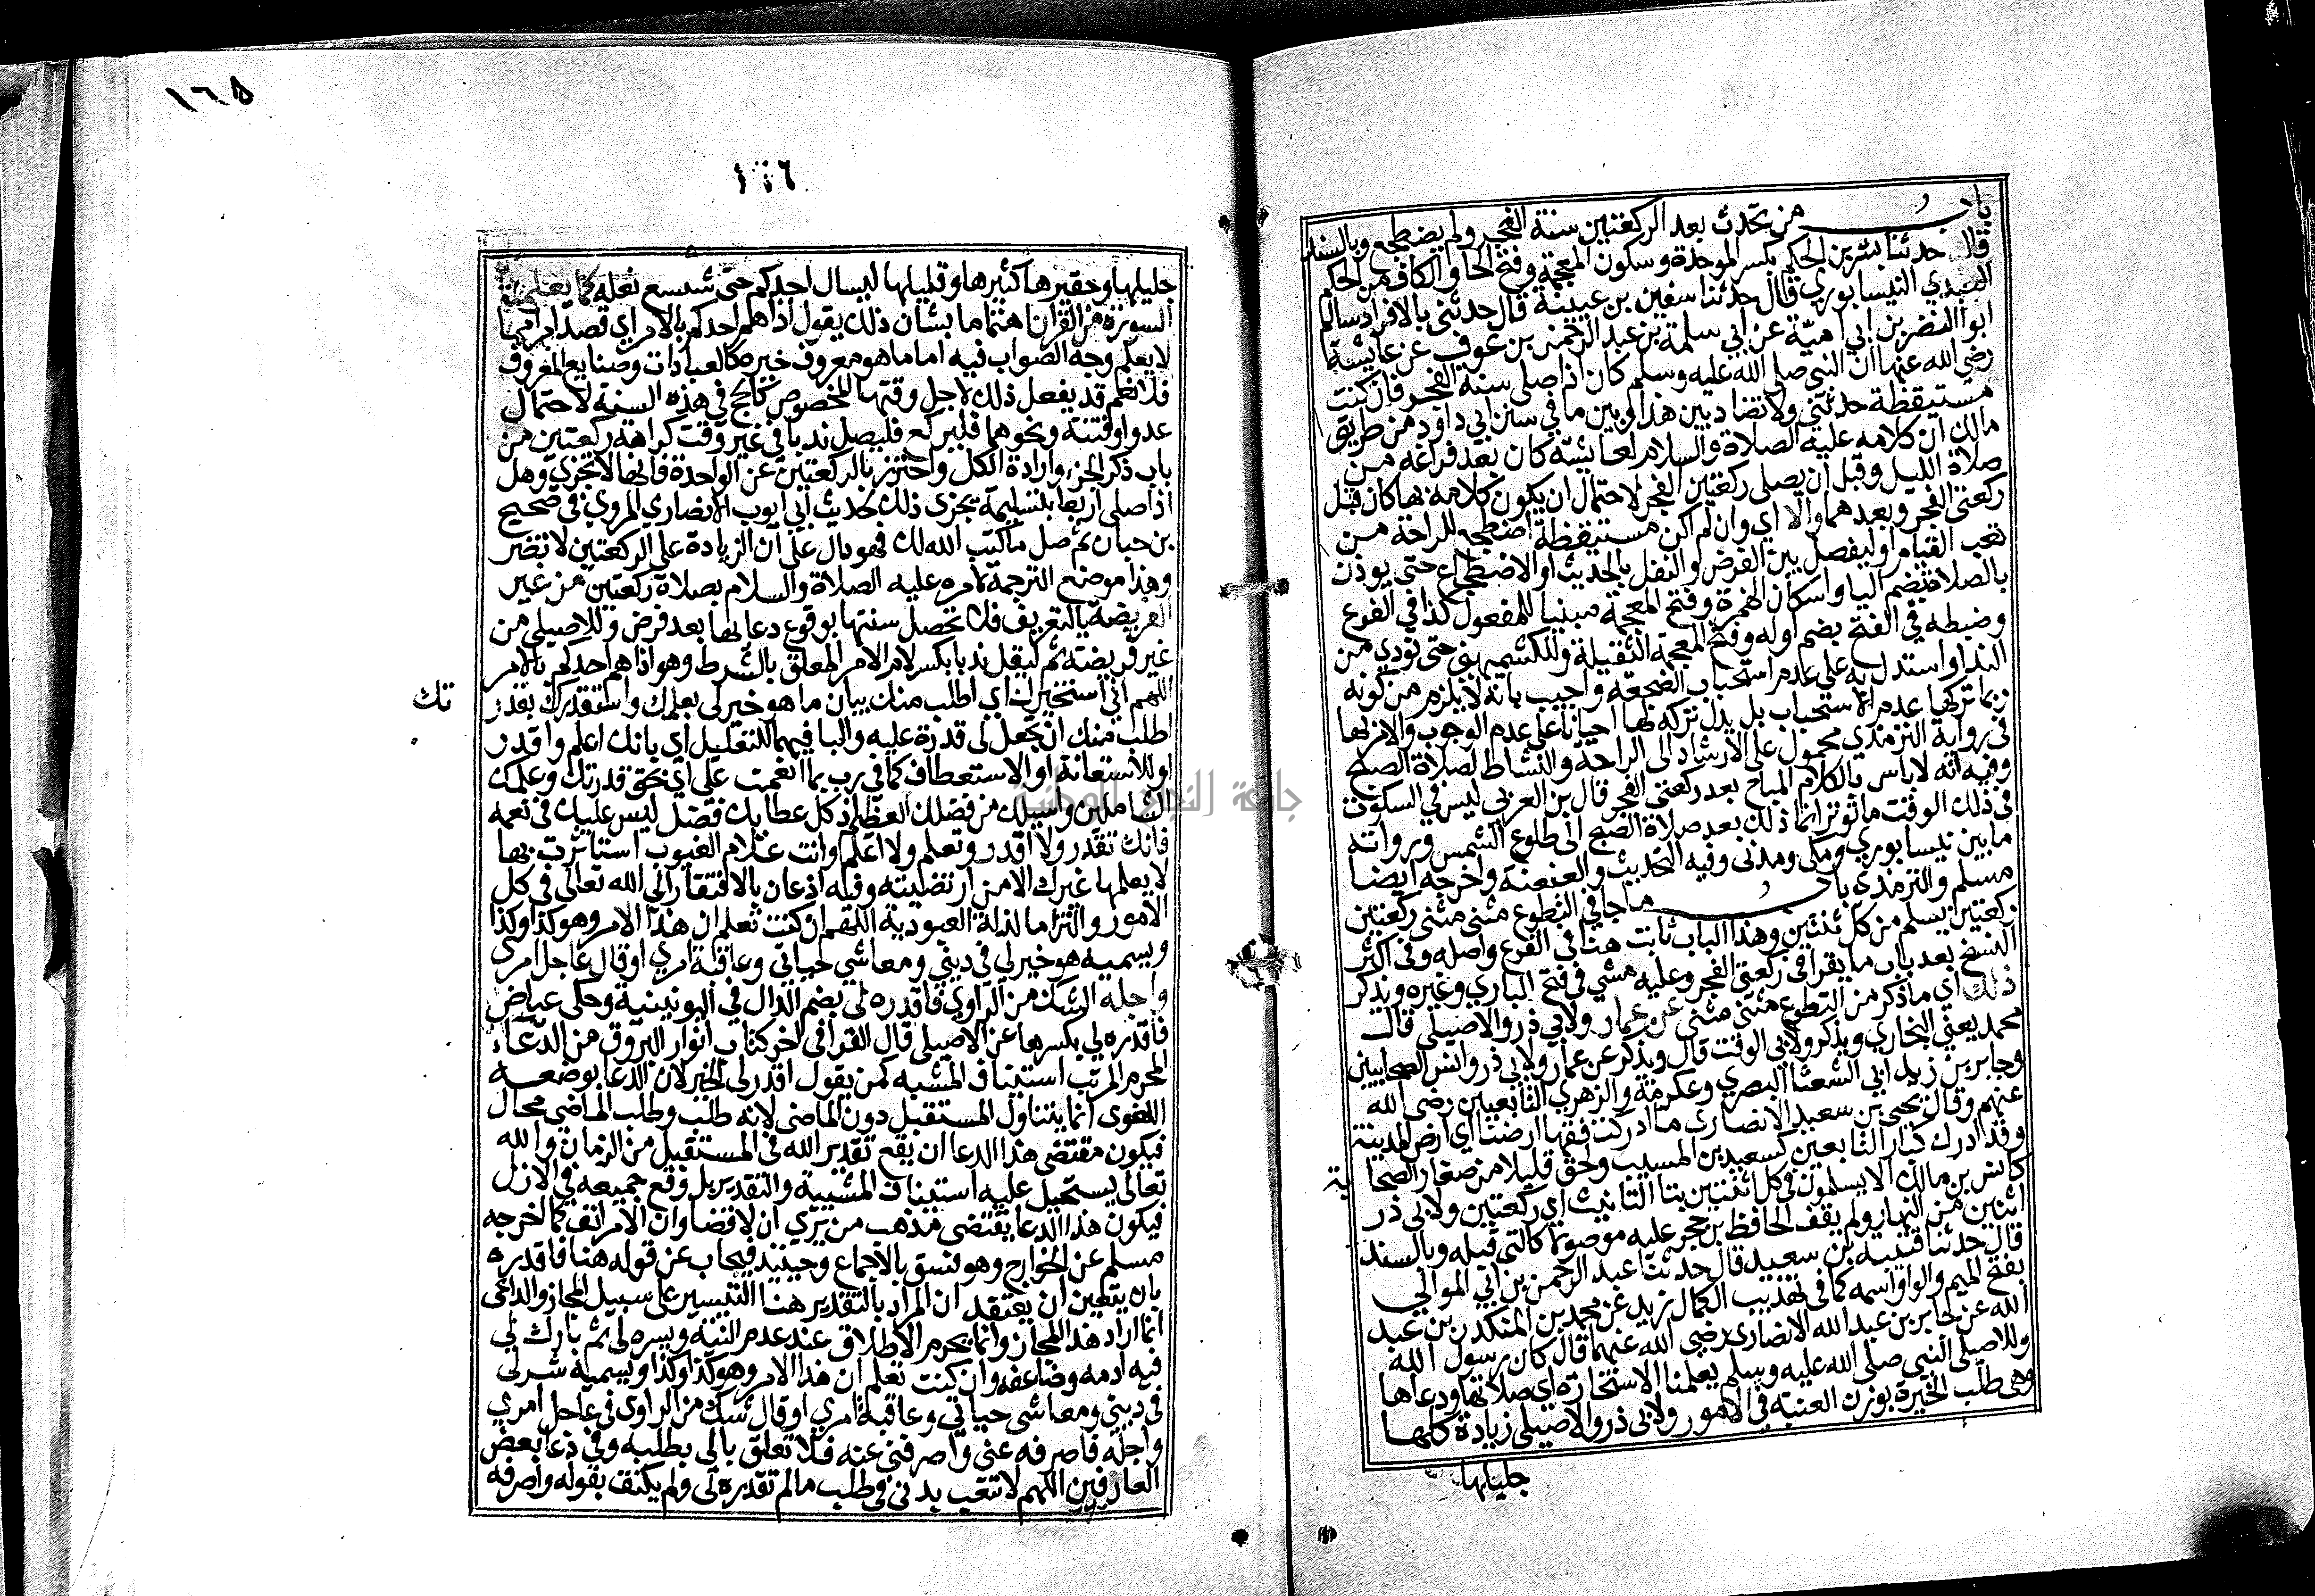 باب من تحدث بعد الركعتين سنة الفجر ولم يضطجع وبالسند
قال حدثنا بشر بن الحكم بكسر الموحدة وسكون المعجمة وفتح الحا والكاف من الحكم
العبدي النيسابوري قال حدثنا سفين بن عيينة قال حدثني بالافراد سالم
ابو النضر بن ابي امية عن ابي سلمة بن عبد الرحمن بن عوف عن عايشة
رضي الله عنها ان النبي صلى الله عليه وسلم كان اذا صلى سنة الفجر فان كنت
مستيقظة حدثني ولا تضاد بين هذا وبين ما في سنن ابي داود من طريق
مالك ان كلامه عليه الصلاة والسلام لعايشة كان بعد فراغه من
صلاة الليل وقبل ان يصلي ركعتين الفجر لاحتمال ان يكون كلامه لها كان قبل
ركعتي الفجر وبعدهما والا اي وان لم اكن مستيقظة اضطجع للراحة من
تعب القيام او ليفصل بين الفرض والنفل بالحديث او الاضطجاع حتى يوذن
بالصلاة بضم اليا واسكان الهمزة وفتح المعجمة مبنيا للمفعول كذا في الفرع
وضبطه في الفتح بضم اوله وفتح المعجمة الثقيلة وللكشميهني حتى نودي من
الندا واستدل به على عدم استحباب الضجعة واجيب بانه لا يلزم من كونه
ربما تركها عدم الاستحباب بل يدل تركه لها احيانا على عدم الوجوب والامر بها
في رواية الترمذي محمول على الارشاد الى الراحة والنشاط لصلاة الصبح
وفيه انه لا باس بالكلام المباح بعد ركعتي الفجر قال بن العربي ليس في السكوت
في ذلك الوقت ماثور انما ذلك بعد صلاة الصبح الى طلوع الشمس ورواته
ما بين نيسابوري ومكي ومدني وفيه التحديث والعنعنة واخرجه ايضا
مسلم والترمذي باب ما جا في التطوع مثنى مثنى ركعتين
ركعتين يسلم من كل ثنتين وهذا الباب ثابت هنا في الفرع واصله وفي اكثر
النسخ بعد باب ما يقرا في ركعتي الفجر وعليه مشي في فتح الباري وغيره ويذكر
ذلك اي ما ذكر من التطوع مثنى مثنى عن عمار ولابي ذر والاصيلي قال
محمد يعني البخاري ويذكر ولابي الوقت قال ويذكر عن عمار ولابي ذر وانس الصحابيين
وجابر بن زيد ابي الشعثا البصري وعكرمة والزهري التابعيين رضي الله
عنهم وقال يحيى بن سعيد الانصاري ما ادركت فقها ارضنا اي ارض المدينة
وقد ادرك كبار التابعين كسعيد بن المسيب ولحق قليلا من صغار الصحا بة
كانس بن مالك الا يسلمون في كل اثنتين بتا التانيث اي ركعتين ولابي ذر
اثنين من النهار ولم يقف الحافظ بن حجر عليه موصولا كالتي قبله وبالسند
قال حدثنا قتيبة بن سعيد قال حدثنا عبد الرحمن بن ابي الموالي
بفتح الميم والواو واسمه كما في تهذيب الكمال زيد عن محمد بن المنكدر بن عبد
الله عن جابر بن عبد الله الانصاري رضي الله عنهما قال كان رسول الله
وللاصيلي النبي صلى الله عليه وسلم يعلمنا الاستخارة اي صلاتها ودعاها
وهي طلب الخيرة بوزن العنبة في الامور ولابي ذر والاصيلي زيادة كلها
جليلها
١٦٥
١٠٠٦
جليلها وحقيرها كثيرها وقليلها ليسال احدكم حتى شسع نعله كما يعلمنا
السورة من القران اهتماما بشان ذلك يقول اذا هم احدكم بالامر اي قصد امرا مما
لا يعلم وجه الصواب فيه اما ما هو معروف خيره كالعبادات وصنايع المعروف
فلا نعم قد يفعل ذلك لاجل وقتها المخصوص كالحج في هذه السنة لاحتمال
عدو او فتنة ونحوهما فليركع فليصل ندبا في غير وقت كراهة ركعتين من
باب ذكر الجزء وارادة الكل واحترز بالركعتين عن الواحدة فانها لا تجزي وهل
اذا صلى اربعا بتسليمة يجزي ذلك لحديث ابي ايوب الانصاري المروي في صحيح
بن حبان ثم صل ما كتب الله لك فهو دال على ان الزيادة على الركعتين لا تضر
وهذا موضع الترجمة لامره عليه الصلاة والسلام بصلاة ركعتين من غير
الفريضة بالتعريف فلا تحصل سنتها بوقوع دعايها بعد فرض وللاصيلي من
غير فريضته ثم ليقل ندبا بكسر لام الامر المعلق بالشرط وهو اذا هم احدكم بالامر
اللهم اني استخيرك اي اطلب منك بيان ما هو خير لي بعلمك واستقدرك بقدر تك
اطلب منك ان تجعل لي قدرة عليه والبا فيهما للتعليل اي بانك اعلم واقدر
او للاستعانة او الاستعطاف كما في رب بما انعمت علي اي بحق قدرتك وعلمك
الشاملين واسيلك من فضلك العظيم اذ كل عطايك فضل ليس عليك في نعمه
فانك تقدر ولا اقدر وتعلم ولا اعلم وانت علام الغيوب استاثرت بها
لا يعلمها غيرك الا من ارتضيته وفيه اذعان بالافتقار الى الله تعالى في كل
الامور والتزاما لذلة العبودية اللهم ان كنت تعلم ان هذا الامر وهو كذا وكذا
ويسميه هو خير لي في ديني ومعاشي حياتي وعاقبة امري او قال عاجل امري
واجله الشك من الراوي فاقدره لي بضم الدال في اليونينية وحكى عياض
فاقدره لي بكسرها عن الاصيلي قال القرافي اخر كتاب انوار البروق من الدعاء
المحرم المرتب استيناف المشيه كمن يقول اقدر لي الخير لان الدعا بوضعه
اللغوي انما يتناول المستقبل دون الماضي لانه طلب وطلب الماضي محال
فيكون مقتضى هذا الدعا ان يقع تقدير الله في المستقبل من الزمان والله
تعالى يستحيل عليه استيناف المشيية والتقدير بل وقع جميعه في الازل
فيكون هذا الدعا يقتضي مذهب من يرى ان لا قضا وان الامر انف كما اخرجه
مسلم عن الخوارج وهو فسق بالاجماع وحينيذ فيجاب عن قوله هنا فاقدره
بان يتعين ان يعتقد ان المراد بالتقدير هنا التيسير على سبيل المجاز والداعي
انما اراد هذا المجاز وانما يحرم الاطلاق عند عدم النية ويسره لي ثم بارك لي
فيه ادمه وضاعفه وان كنت تعلم ان هذا الامر وهو كذا وكذا ويسميه شر لي
في ديني ومعاشي حياتي وعاقبة امري او قال شك من الراوي في عاجل امري
واجله فاصرفه عني واصرفني عنه فلا تعلق بالي بطلبه وفي دعا بعض
العارفين اللهم لا تتعب بدني في طلب ما لم تقدره لي ولم يكتف بقوله واصرفه
جامعة النجاح الوطنية